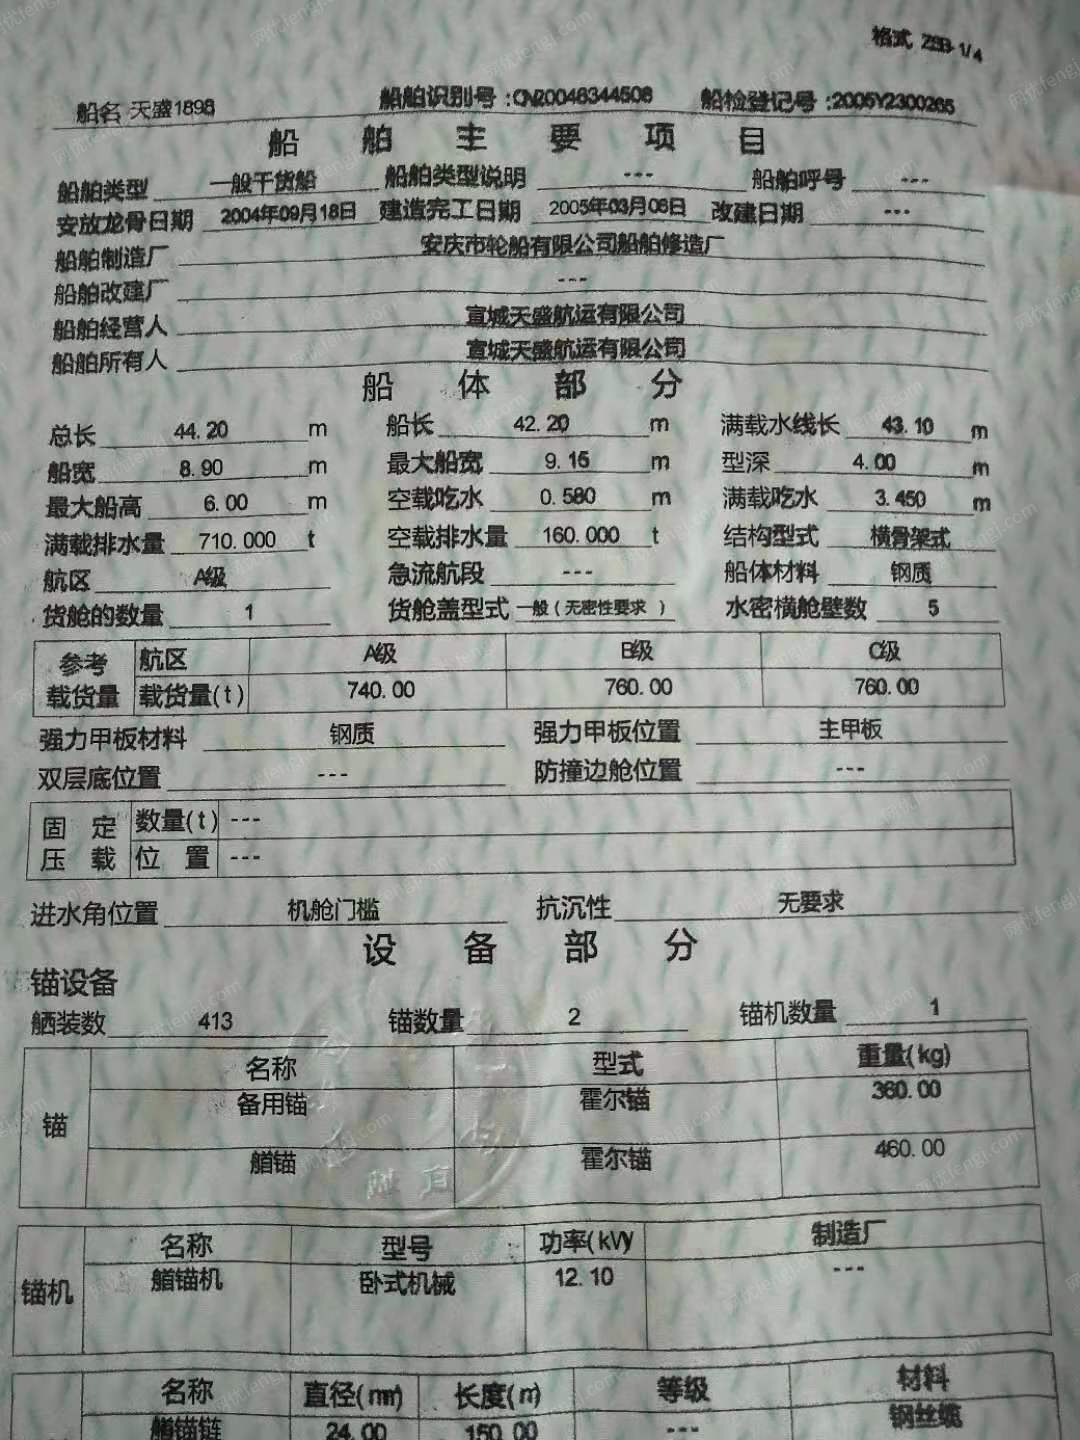 格式 ZSB-1/4
船名 天盛1898 船舶识别号:CN20046344508 船检登记号:2005Y2300265
船舶主要项目
船舶类型 一般干货船 船舶类型说明 --- 船舶呼号 ---
安放龙骨日期 2004年09月18日 建造完工日期 2005年03月06日 改建日期 ---
船舶制造厂 安庆市轮船有限公司船舶修造厂
船舶改建厂 ---
船舶经营人 宣城天盛航运有限公司
船舶所有人 宣城天盛航运有限公司
船体部分
总长 44.20 m 船长 42.20 m 满载水线长 43.10 m
船宽 8.90 m 最大船宽 9.15 m 型深 4.00 m
最大船高 6.00 m 空载吃水 0.580 m 满载吃水 3.450 m
满载排水量 710.000 t 空载排水量 160.000 t 结构型式 横骨架式
航区 A级 急流航段 --- 船体材料 钢质
货舱的数量 1 货舱盖型式 一般(无密性要求 ) 水密横舱壁数 5
参考 航区 A级 B级 C级
载货量 载货量(t) 740.00 760.00 760.00
强力甲板材料 钢质 强力甲板位置 主甲板
双层底位置 --- 防撞边舱位置 ---
固定 数量(t) ---
压载 位置 ---
进水角位置 机舱门槛 抗沉性 无要求
设备部分
锚设备
舾装数 413 锚数量 2 锚机数量 1
名称 型式 重量(kg)
锚 备用锚 霍尔锚 360.00
艏锚 霍尔锚 460.00
名称 型号 功率(kW) 制造厂
锚机 艏锚机 卧式机械 12.10 ---
名称 直径(mm) 长度(m) 等级 材料
艏锚链 24.00 150.00 --- 钢丝缆